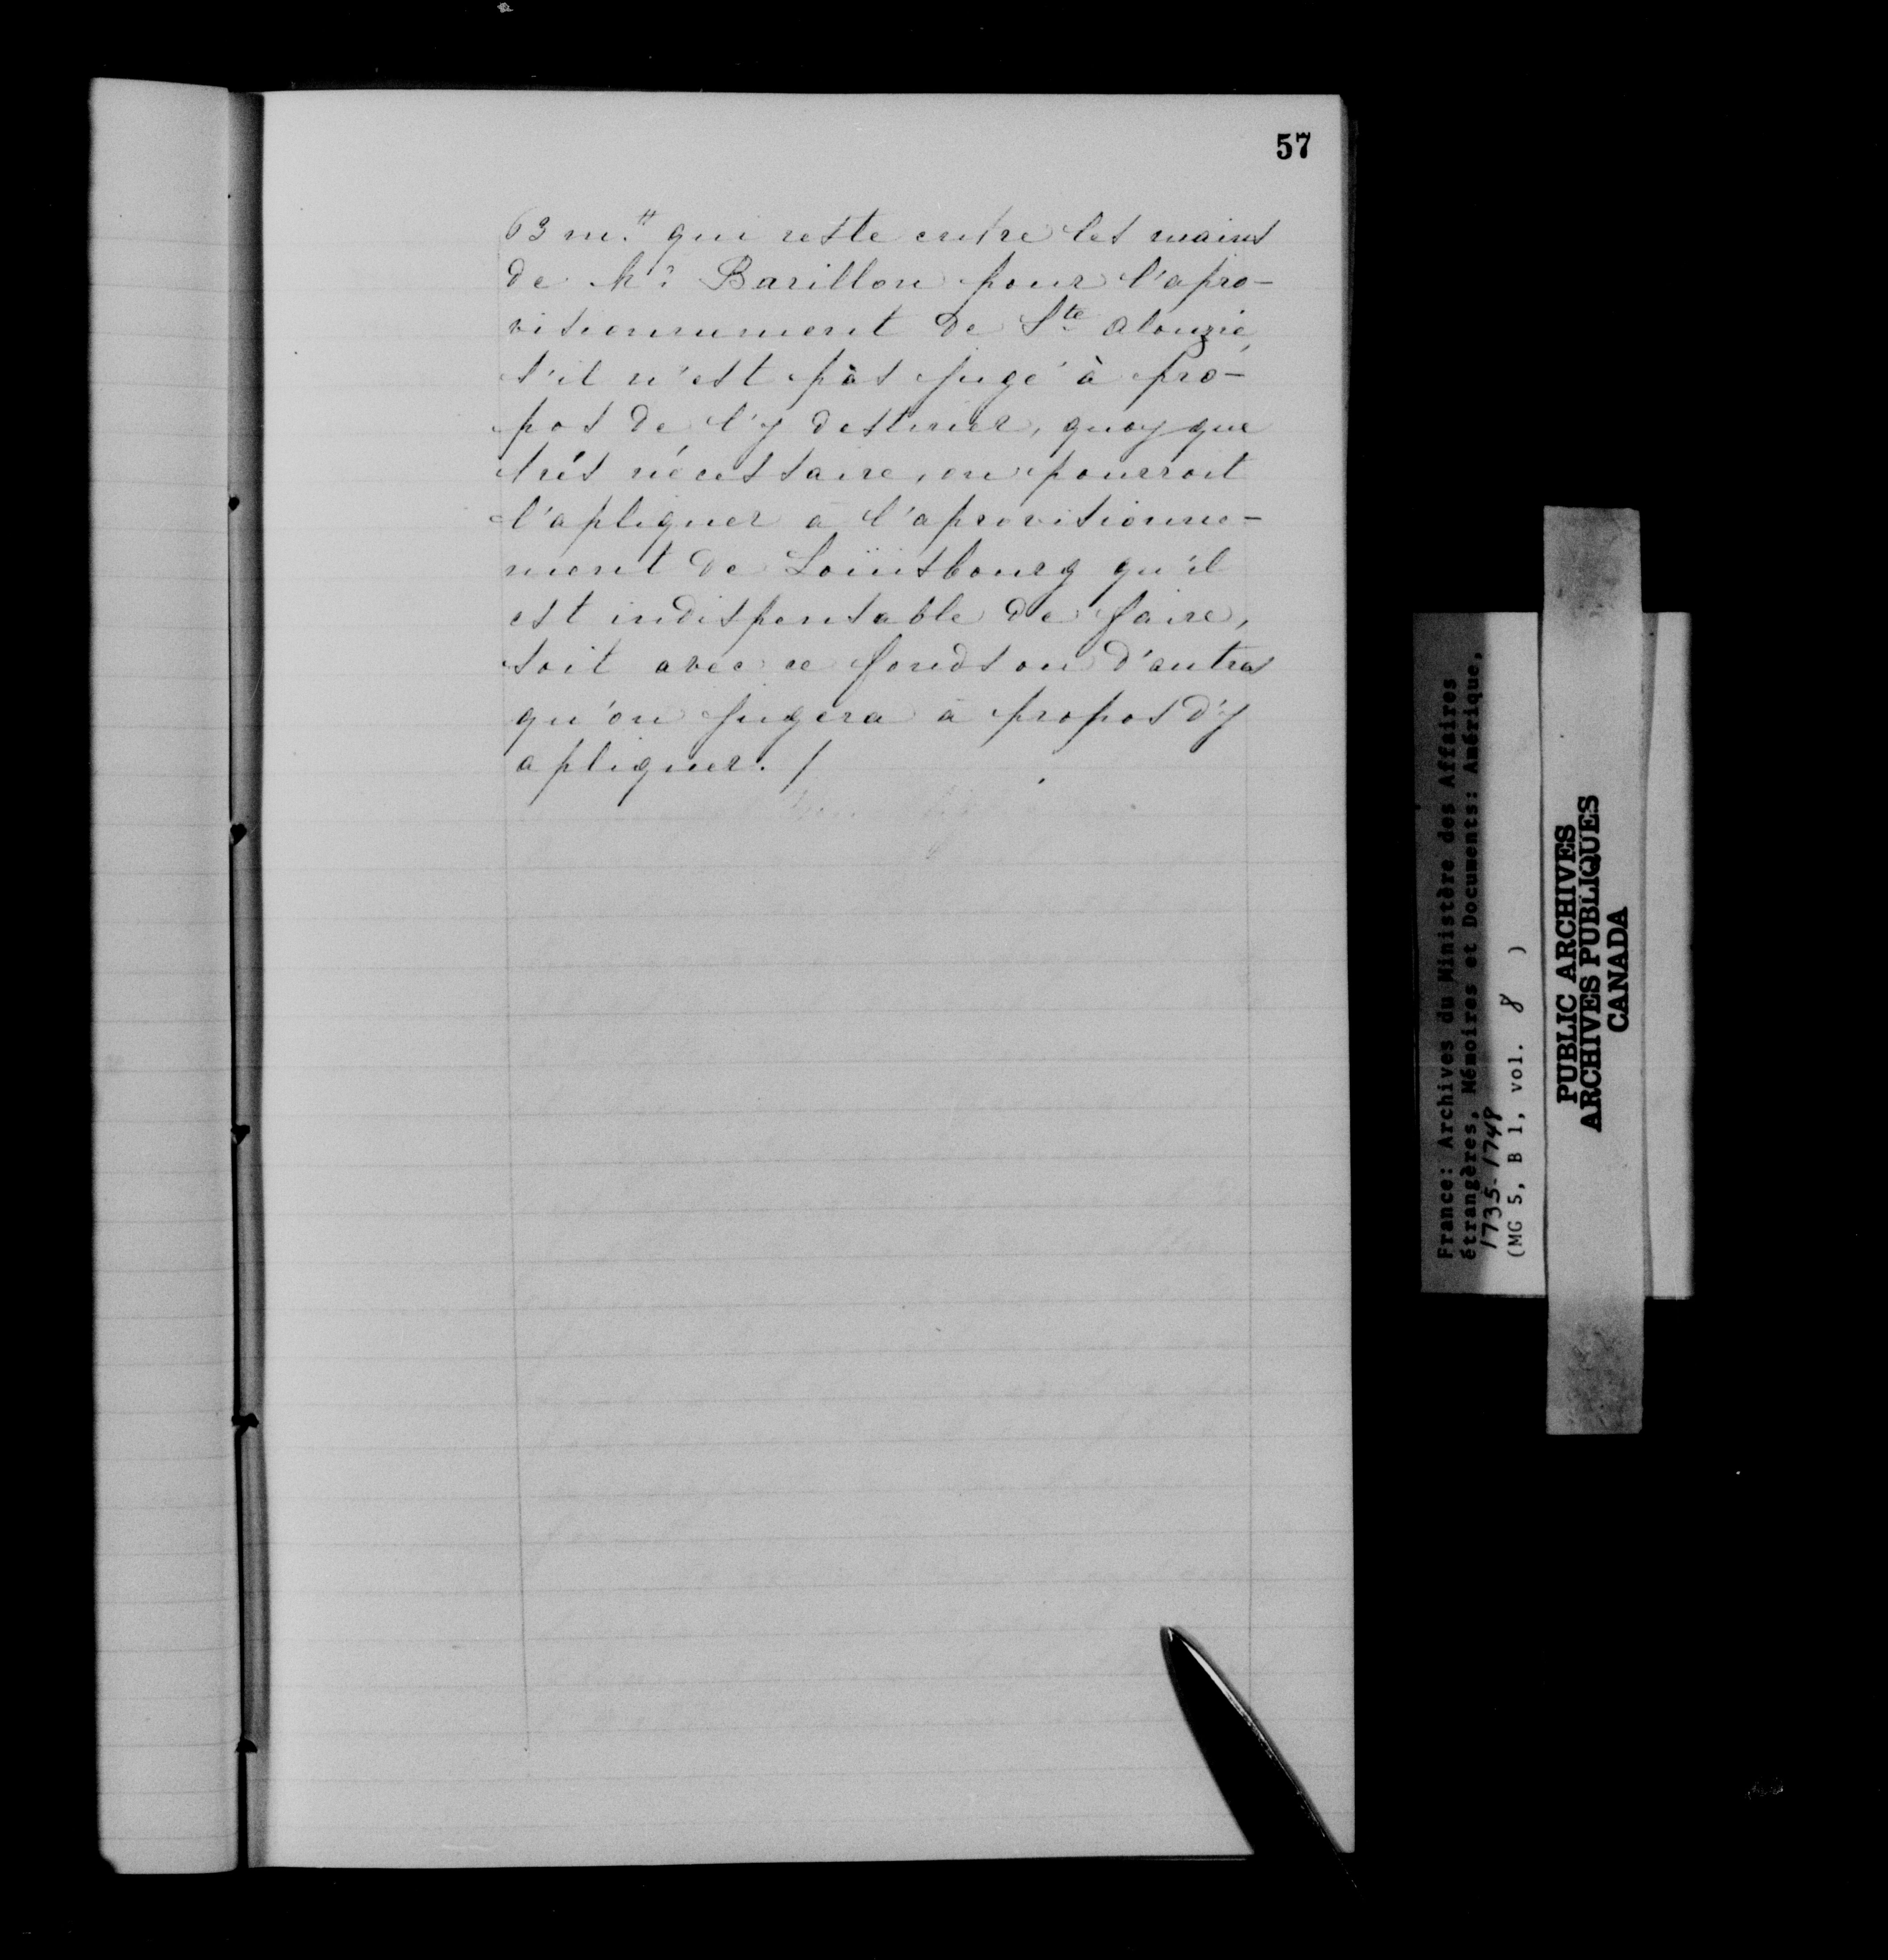 57
63 m.tt qui reste entre les mains
de Mr Barillon pour l'apro-
visionnement de Ste alouzie,
s'il n'est pàs jugé à pro-
pos de l'y destiner, quoy que
trés nécessaire, on pourroit
l'apliquer à l'aprovisionne-
ment de Loüisbourg qu'il
est indispensable de faire,
soit avec ce fonds ou d'autres
qu'on jugera à propos d'y
apliquer. /
France: Archives du Ministère des Affaires
étrangères, Mémoires et Documents: Amérique,
1735-1748
(MG 5, B 1, vol. 8 )
PUBLIC ARCHIVES
ARCHIVES PUBLIQUES
CANADA